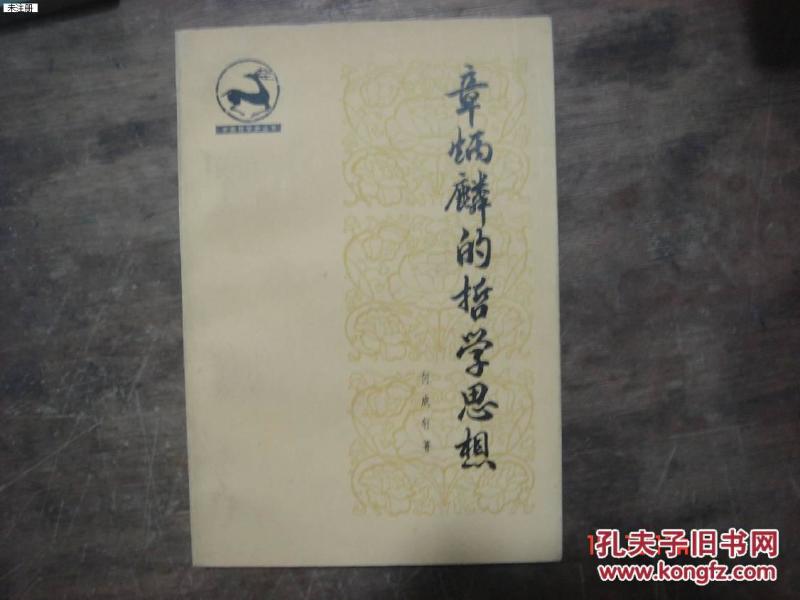 未注册
中国哲学史丛书
章炳麟的哲学思想
何成轩著
孔夫子旧书网
www.kongfz.com